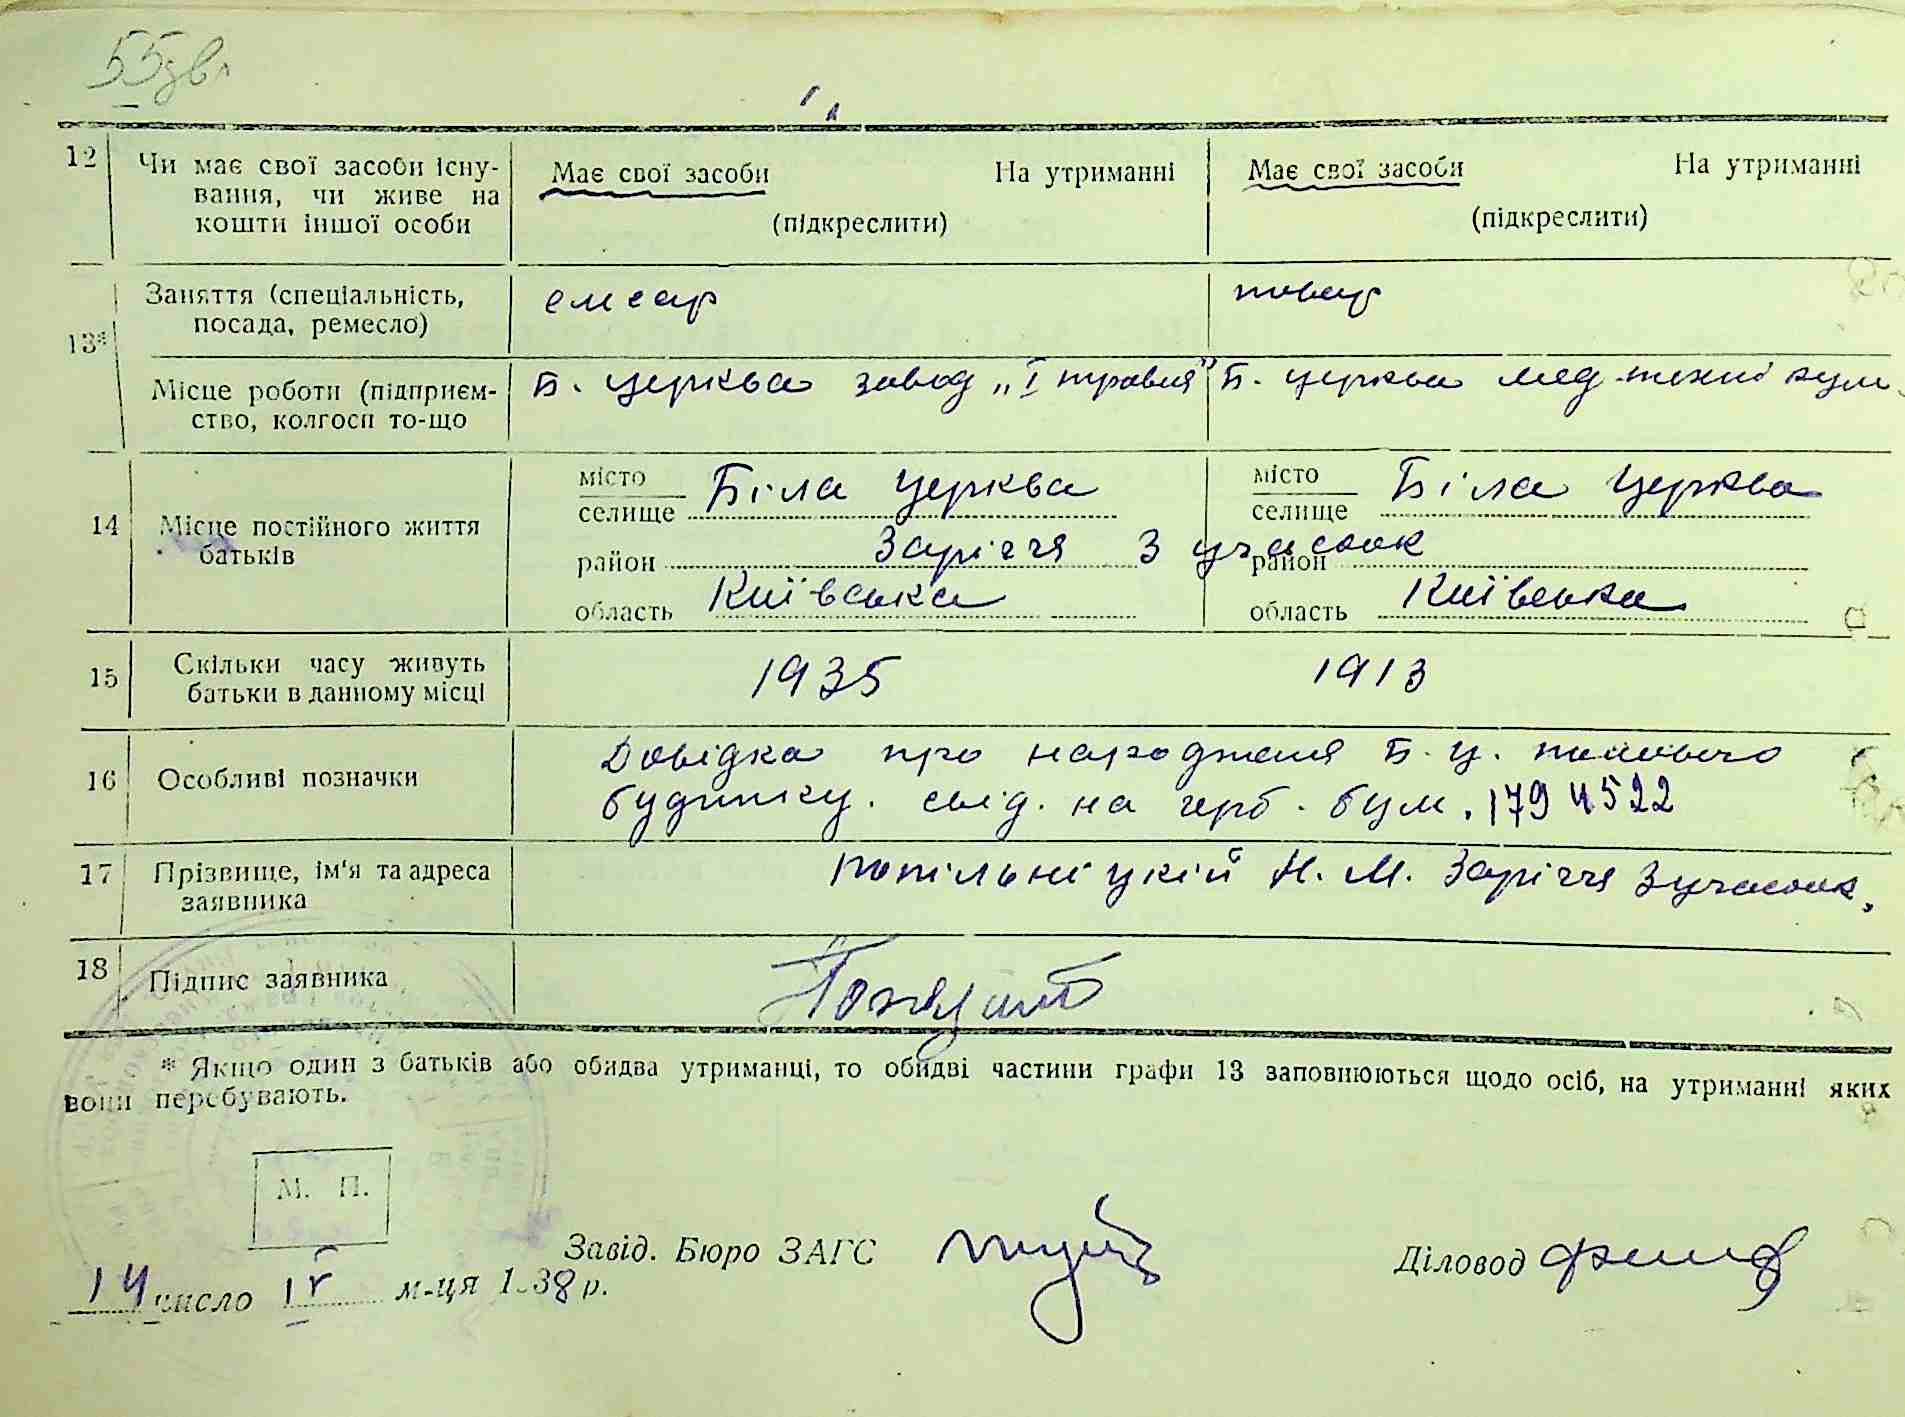 55зв.
12 Чи має свої засоби існу-
вання, чи живе на
кошти іншої особи
Має свої засоби На утриманні
(підкреслити)
Має свої засоби На утриманні
(підкреслити)
13*
Заняття (спеціальність,
посада, ремесло)
слесар
повар
Місце роботи (підприєм-
ство, колгосп то-що
Б. Церква завод „І травня"
Б. Церква мед-технікум
14 Місце постійного життя
батьків
місто
селище Біла Церква
район Заріччя 3 участок
область Київська
місто
селище Біла Церква
район
область Київська
15 Скільки часу живуть
батьки в данному місці
1935
1913
16 Особливі позначки
Довідка про народження Б. Ц. полового
будинку. свід. на герб. бум. 1794522
17 Прізвище, ім'я та адреса
заявника
Попільніцкій Н. М. Заріччя 3 участок,
18 Підпис заявника
* Якщо один з батьків або обидва утриманці, то обидві частини графи 13 заповнюються щодо осіб, на утриманні яких
вони перебувають.
М. П.
Завід. Бюро ЗАГС
Діловод
14 число IV м-ця 1938 р.